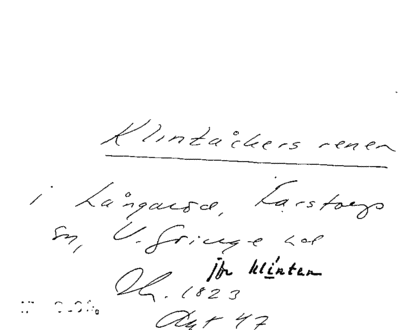 Klintåkers renen
i Långaröd, Karstorps
sn, V. Göinge hd
jfr klinten
Oh. 1823
Akt 47